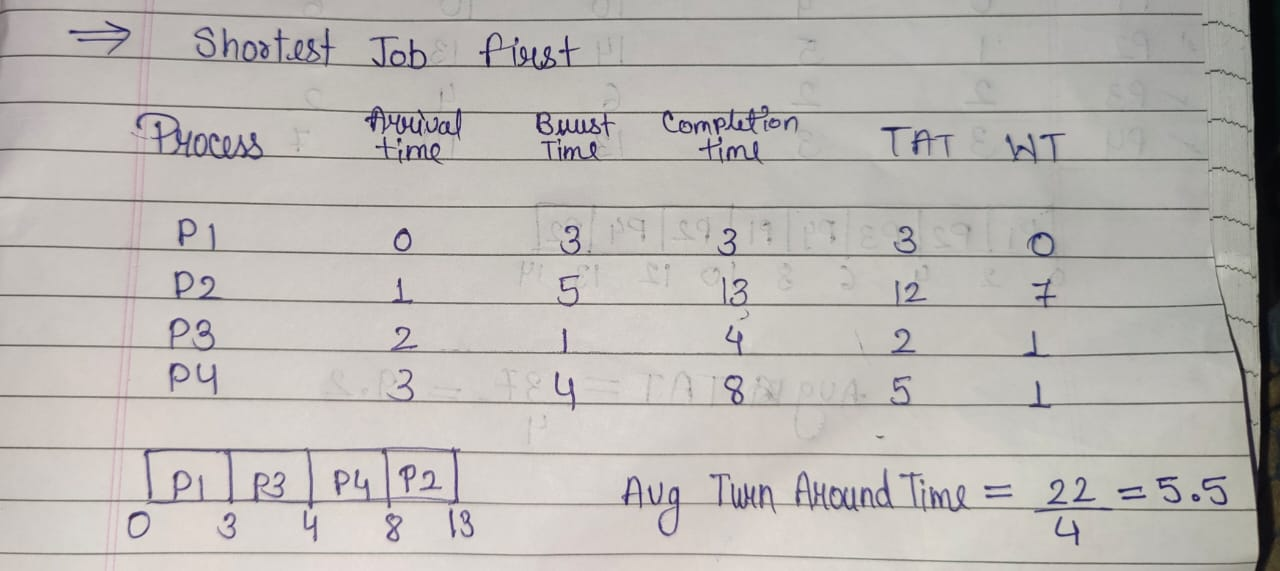 ⇒ Shortest Job first
Process Arrival time Burst Time Completion time TAT WT
P1 0 3 3 3 0
P2 1 5 13 12 7
P3 2 1 4 2 1
P4 3 4 8 5 1
P1 P3 P4 P2
0 3 4 8 13
Avg Turn Around Time = 22/4 = 5.5